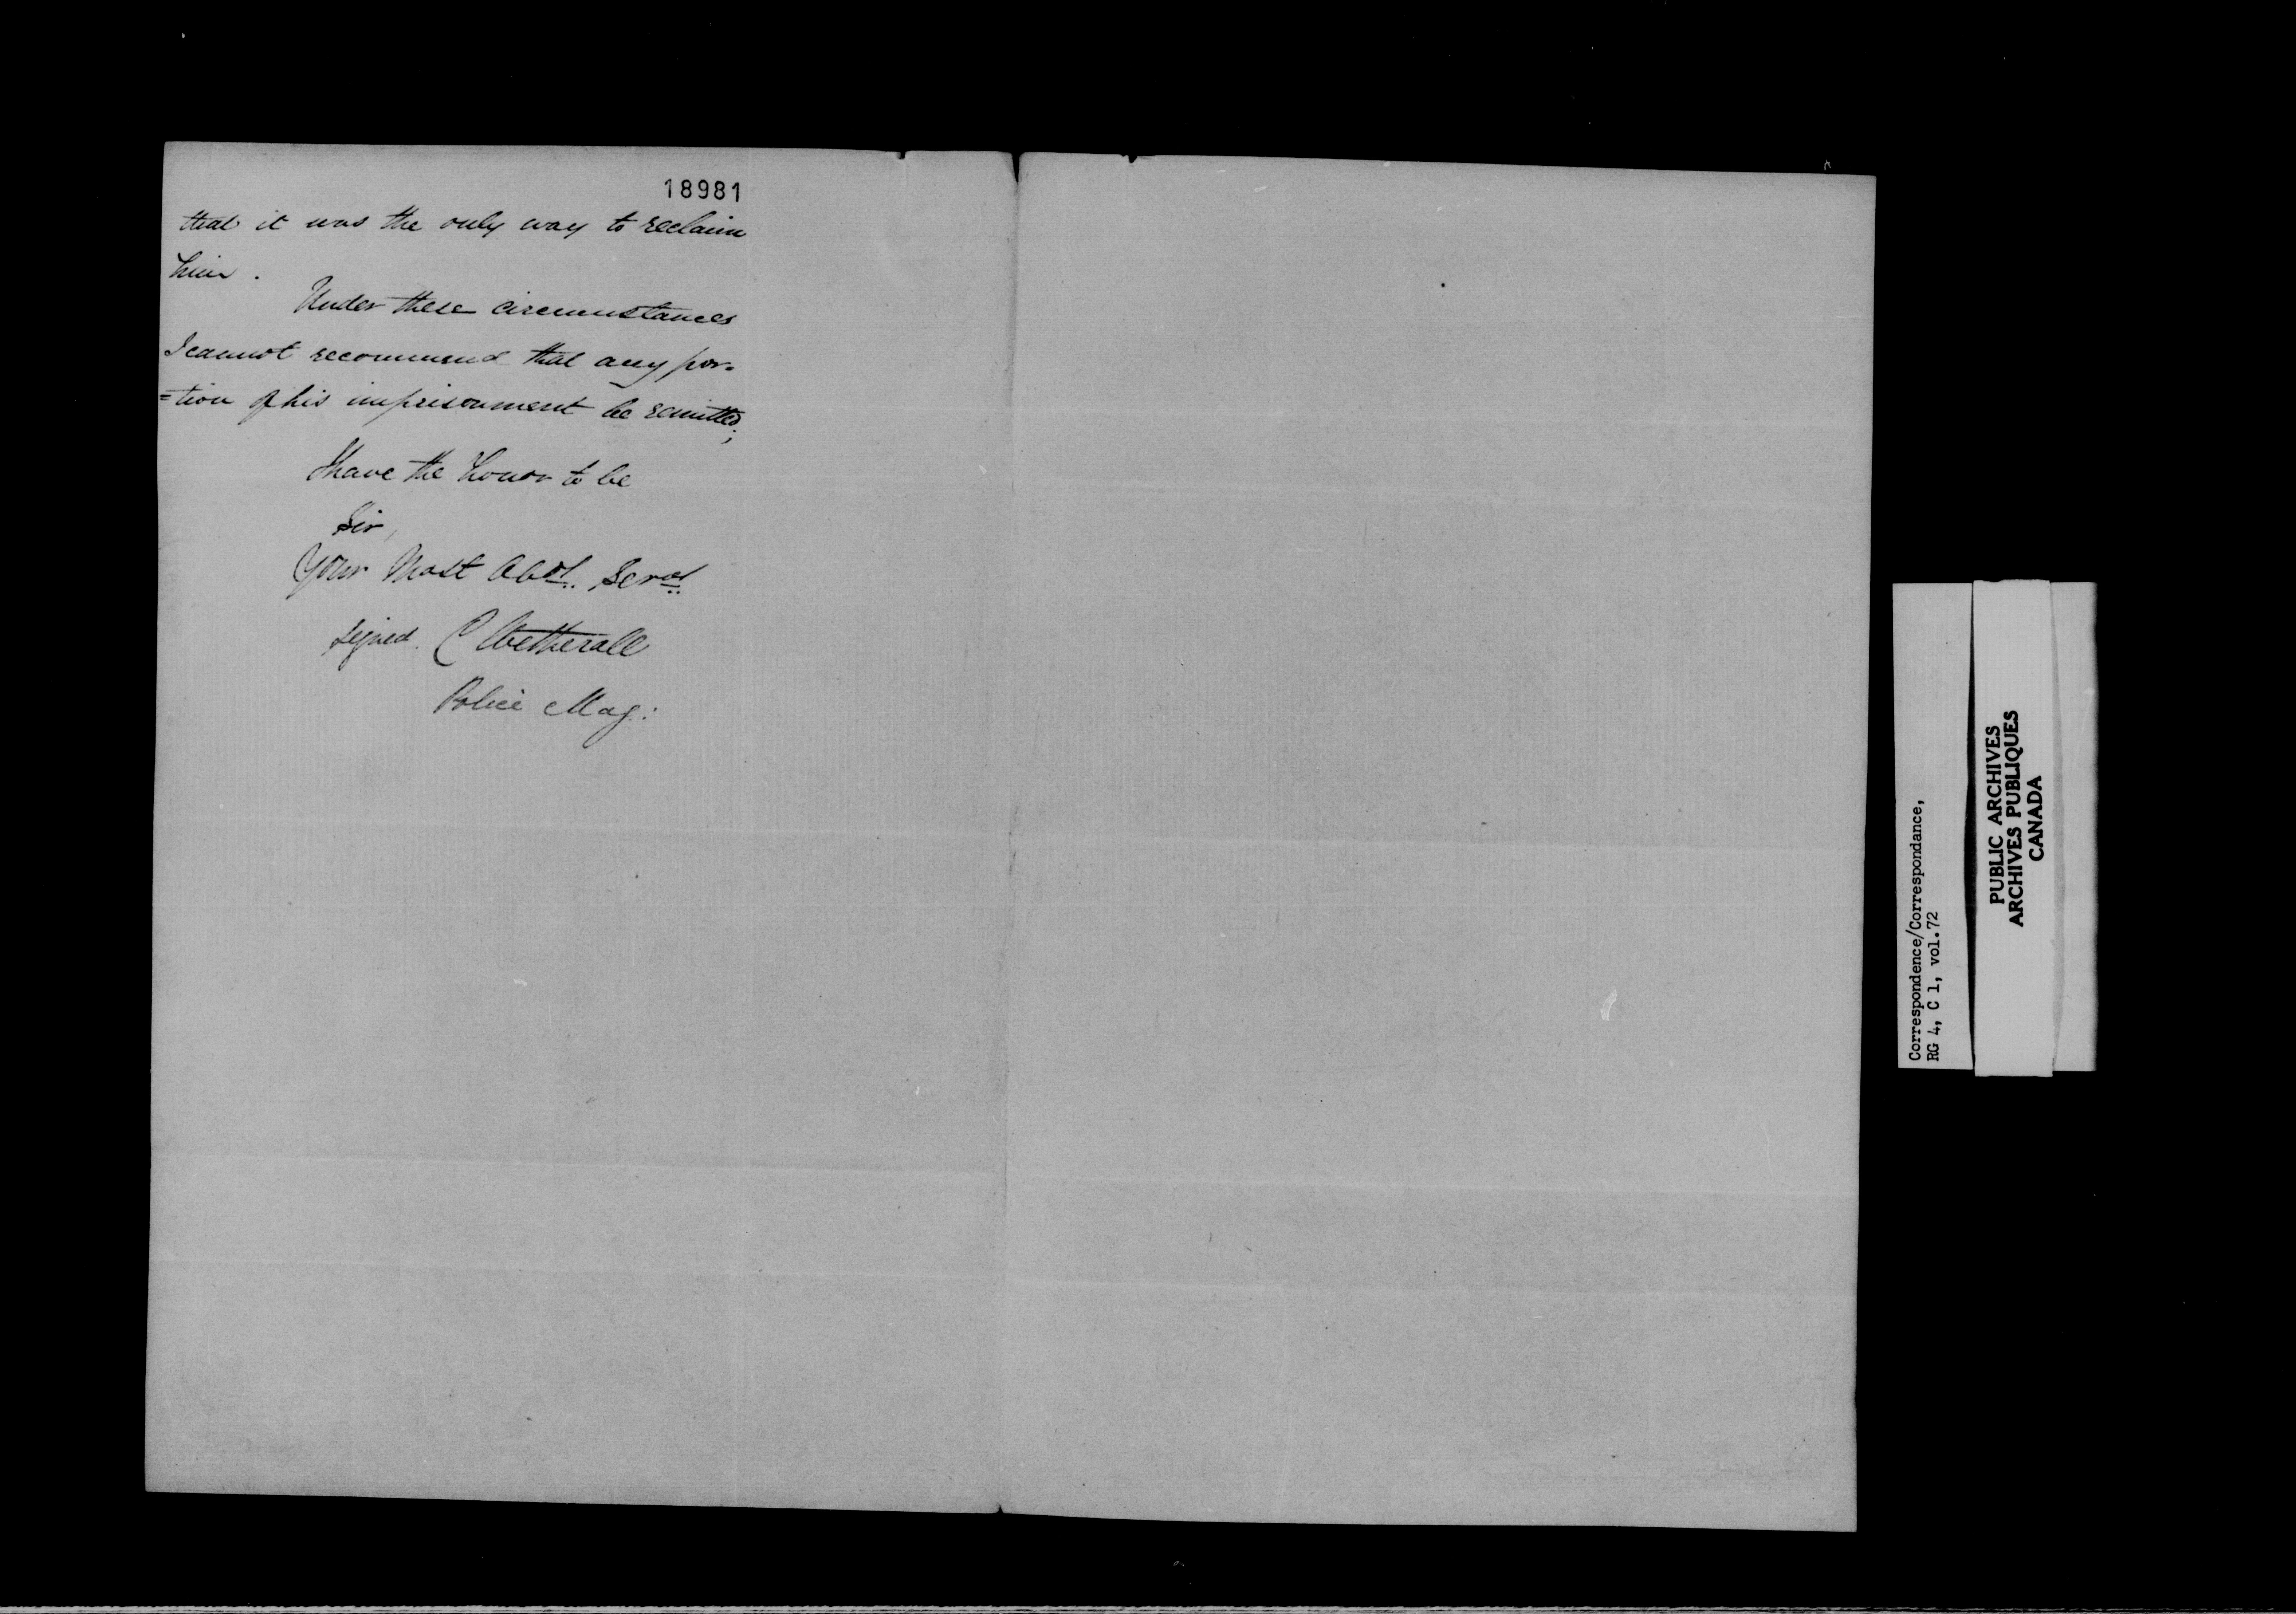 18981
that it was the only way to reclaim
him.
Under these circumstances
I cannot recommend that any por=
=tion of his imprisonment be remitted;
I have the honor to be
Sir,
Your Most Obdt. Servt.
signed. C Wetherall
Police Mag:
Correspondence/Correspondance,
RG 4, C 1, vol.72
PUBLIC ARCHIVES
ARCHIVES PUBLIQUES
CANADA